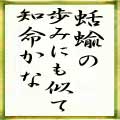 蛞蝓の
歩みにも似て
知命かな